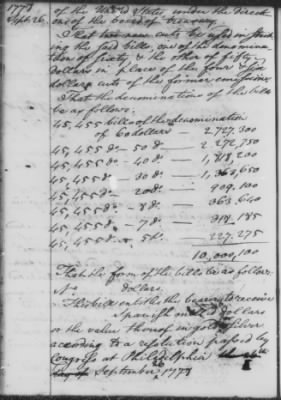 1778
Sept. 26.
of the United States under the direct-
ion of the board of treasury.
That two new cuts be used in print-
ing the said bills, one of the denomina-
tion of sixty & the other of fifty
dollars in place of the fours & five
dollars cuts of the former emissions.
That the denominations of the bills
be as follows.
45,455 bills of the denomination
of 60 dollars 2,727,300
45,455 do - 50 do — 2,272,750
45,455 do - 40 do — 1,818,200
45,455 d - 30 do — 1,363,650
45,455 do - 20 do — 909,100
45,455 do - 8 do — 363,640
45,455 do - 7 do — 318,185
45,455 do - 5 do — 227,275
10,000,100
That the form of the bills be as follows.
No dollars.
This bill entitles the bearer to receive
Spanish milled dollars
or the value thereof in gold or silver
according to a resolution passed by
Congress at Philadelphia
September 26th 1778